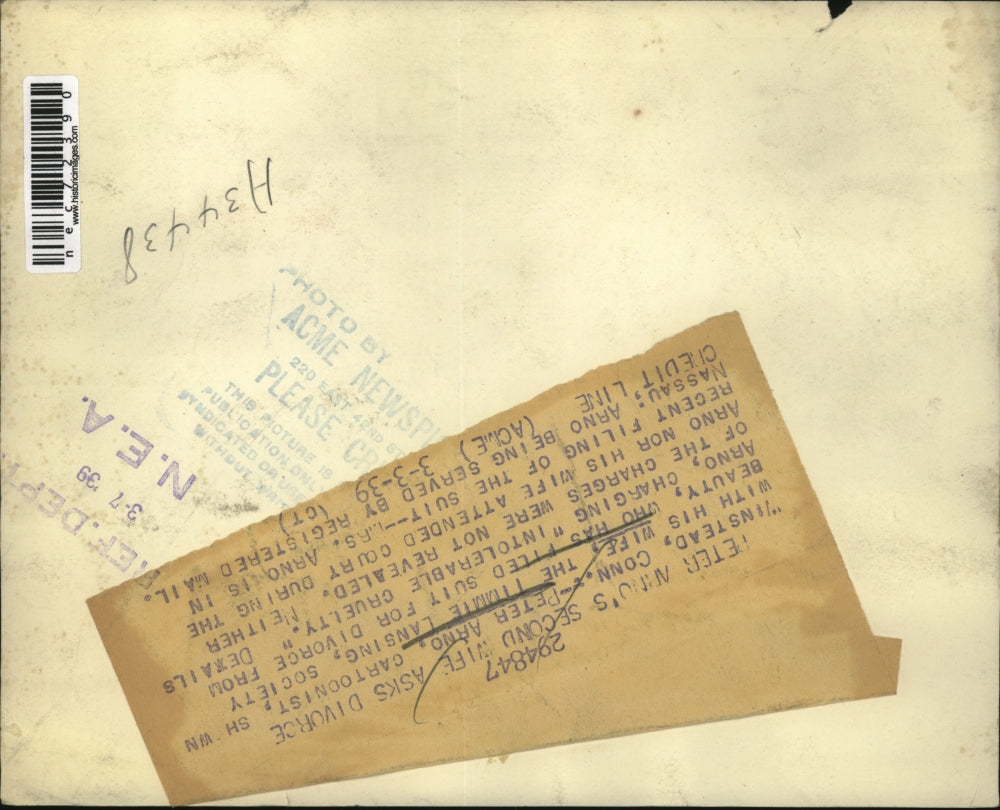 necz2390
www.historicimages.com
H34438
PHOTO BY
ACME NEWSPI
220 EAST 42ND ST
PLEASE CR
THIS PICTURE IS
PUBLICATION ONLY
SYNDICATED OR
WITHOUT
N.E.A.
3-7 39
REF. DEPT
294847
PETER ARNO'S SECOND WIFE ASKS DIVORCE
WINSTEAD, CONN.--PETER ARNO, CARTOONIST, SH WN
WITH HIS WIFE, THE TIMMIE LANSING, SOCIETY
BEAUTY, WHO HAS FILED SUIT FOR DIVORCE FROM
ARNO, CHARGING "INTOLERABLE CRUELTY." DETAILS
OF THE CHARGES WERE NOT REVEALED. NEITHER
ARNO NOR HIS WIFE ATTENDED COURT DURING THE
RECENT FILING OF THE SUIT--MRS. ARNO IS IN
NASSAU; ARNO BEING SERVED BY REGISTERED MAIL.
CREDIT LINE (ACME) 3-3-39 (CT)